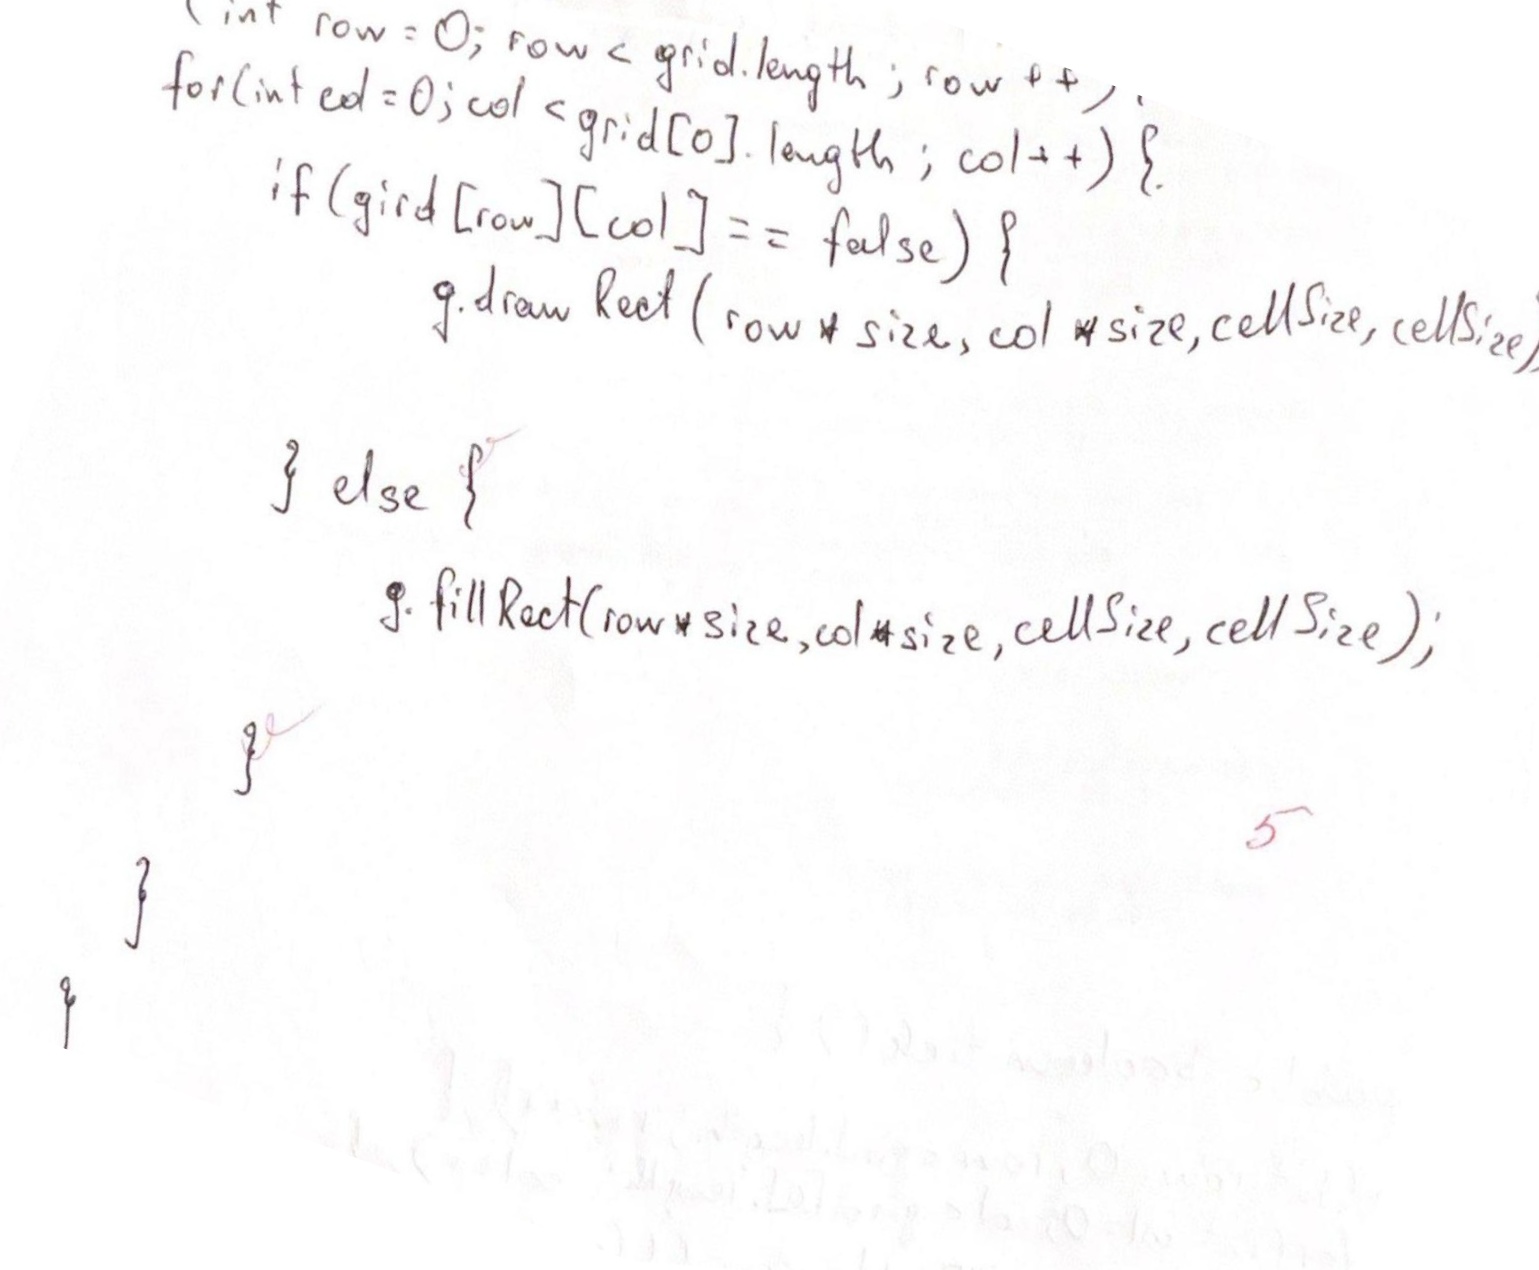 (int row = 0; row < grid.length; row ++)
for(int col = 0; col < grid[0].length; col++) {
if (gird [row][col] == false) {
g.drawRect (row * size, col * size, cellSize, cellSize)
} else {
g.fillRect(row * size, col * size, cellSize, cellSize);
}
5
}
}
boolean